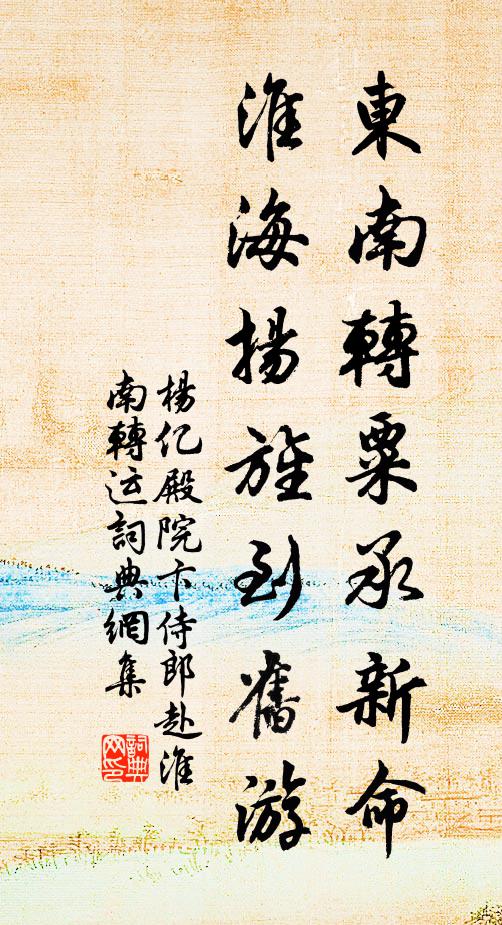 東南轉粟承新命
淮海揚旌到舊游
楊亿殿院卞侍郎赴淮
南轉运詞典網集
詞典網印